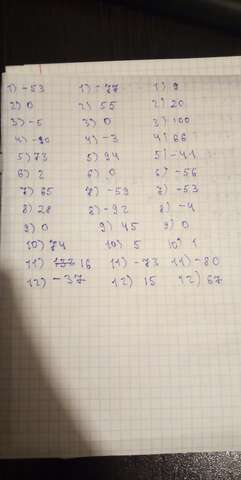 1) -53 1) -77 1) 9
2) 0 2) 55 2) 20
3) -5 3) 0 3) 100
4) -90 4) -3 4) 66
5) 73 5) 94 5) -41
6) 2 6) 0 6) -56
7) 65 7) -59 7) -53
8) 28 8) -92 8) -4
9) 0 9) 45 9) 0
10) 74 10) 5 10) 1
11) 16 11) -73 11) -80
12) -37 12) 15 12) 67